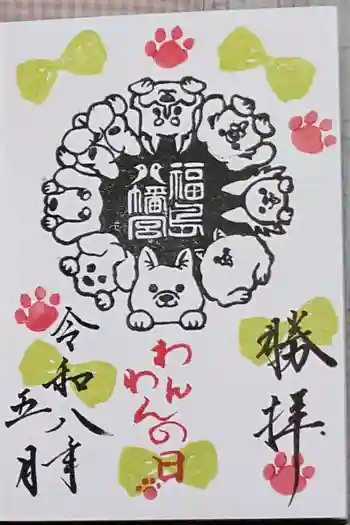 福島
八幡宮
勝拝
わんわんの日
令和八年
五月